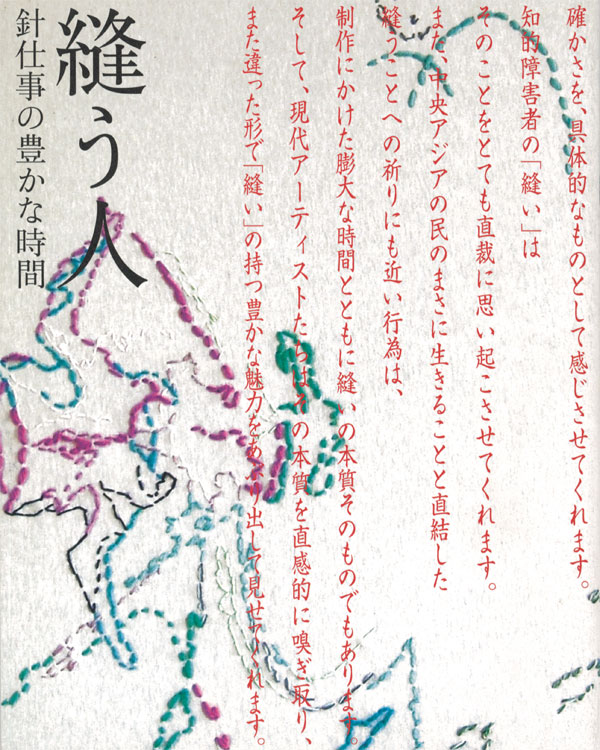 縫う人
針仕事の豊かな時間
確かさを、具体的なものとして感じさせてくれます。
知的障害者の「縫い」は
そのことをとても直裁に思い起こさせてくれます。
また、中央アジアの民のまさに生きることと直結した
縫うことへの祈りにも近い行為は、
制作にかけた膨大な時間とともに縫いの本質そのものでもあります。
そして、現代アーティストたちはその本質を直感的に嗅ぎ取り、
また違った形で「縫い」の持つ豊かな魅力をあぶり出して見せてくれます。